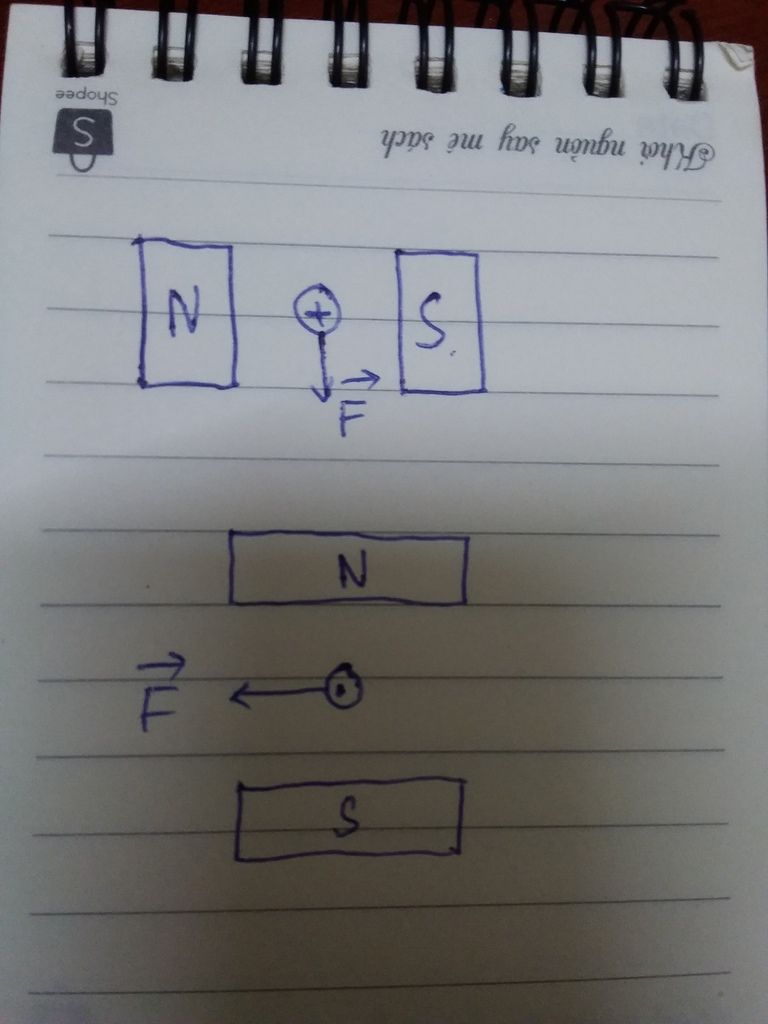 Shopee
S
Khơi nguồn say mê sách
N + S
F
N
F
S